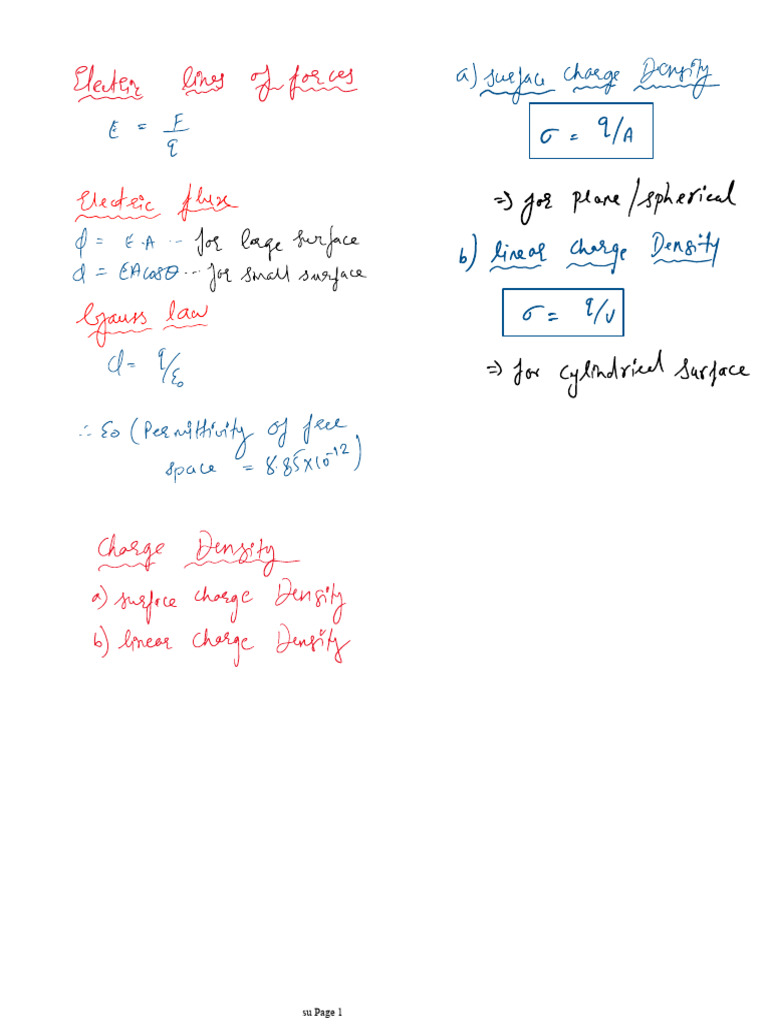 Electric lines of forces
E = F/q
Electric flux
ϕ = E.A ... for large surface
ϕ = EAcosθ ... for small surface
Gauss law
ϕ = q/ε0
∴ ε0 (Permittivity of free
space = 8.85×10^-12)
Charge Density
a) surface charge Density
b) linear charge Density
a) surface charge Density
σ = q/A
⇒ for plane/spherical
b) linear charge Density
σ = q/υ
⇒ for cylindrical surface
su Page 1